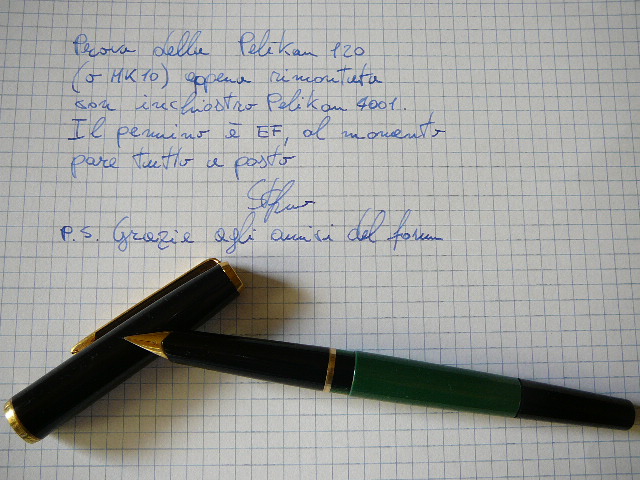 Prova della Pelikan 120
(o MK10) appena rimontata
con inchiostro Pelikan 4001.
Il pennino è EF, al momento
pare tutto a posto
P.S. Grazie agli amici del forum